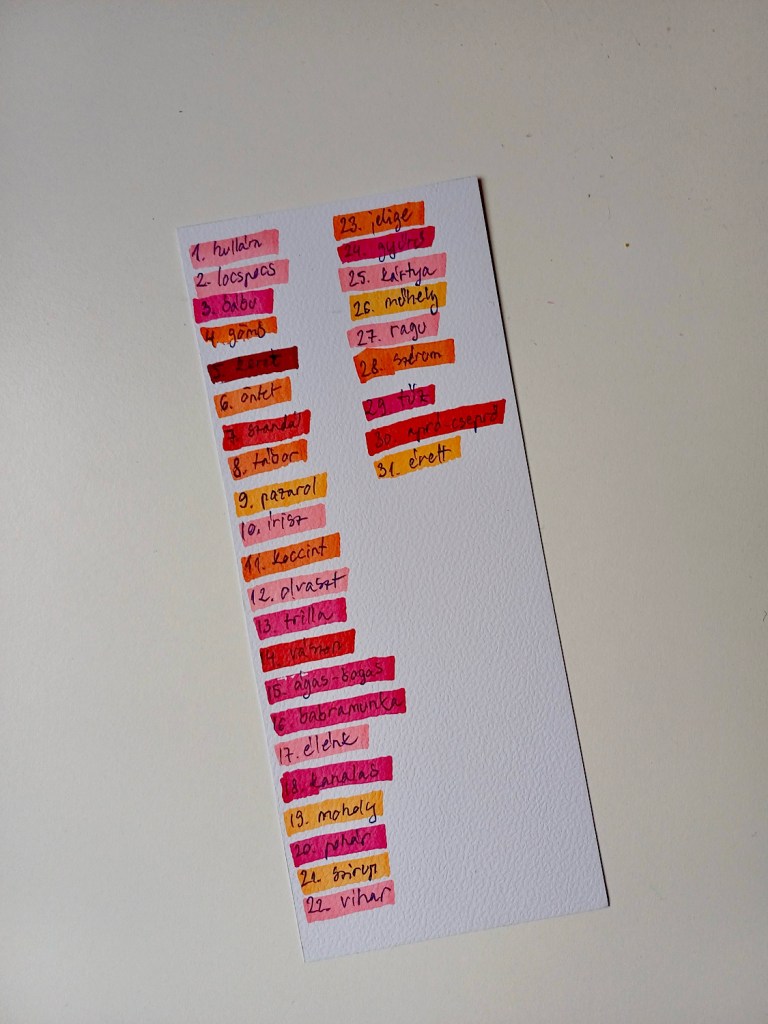 1. hullám
2. locspocs
3. bábu
4. gömb
5. keret
6. öntet
7. standol
8. tábor
9. pazarol
10. írisz
11. koccint
12. olvaszt
13. trilla
14. vászon
15. ágas-bogas
16. babramunka
17. élénk
18. kanalas
19. moholy
20. pohár
21. szirup
22. vihar
23. jelige
24. gyűrűs
25. kártya
26. műhely
27. ragu
28. szérum
29. tűz
30. apró-cseprő
31. érett